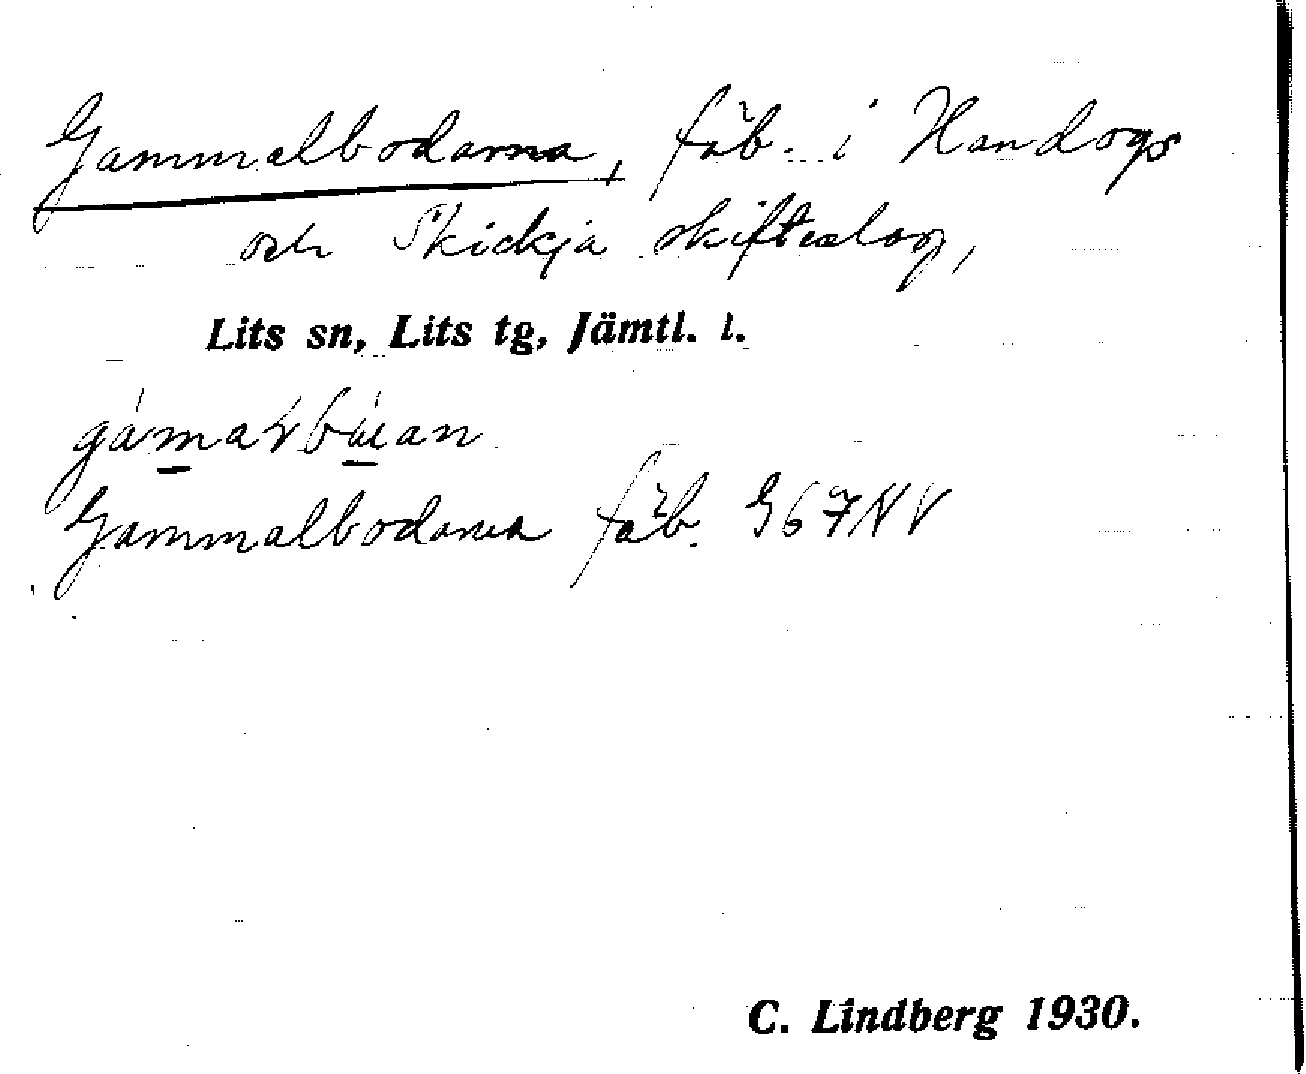 Gammalbodarna, fäb. i Handogs
och Skickja skifteslag,
Lits sn, Lits tg, Jämtl. l.
Gammalbodarna fäb. G67NV
C. Lindberg 1930.